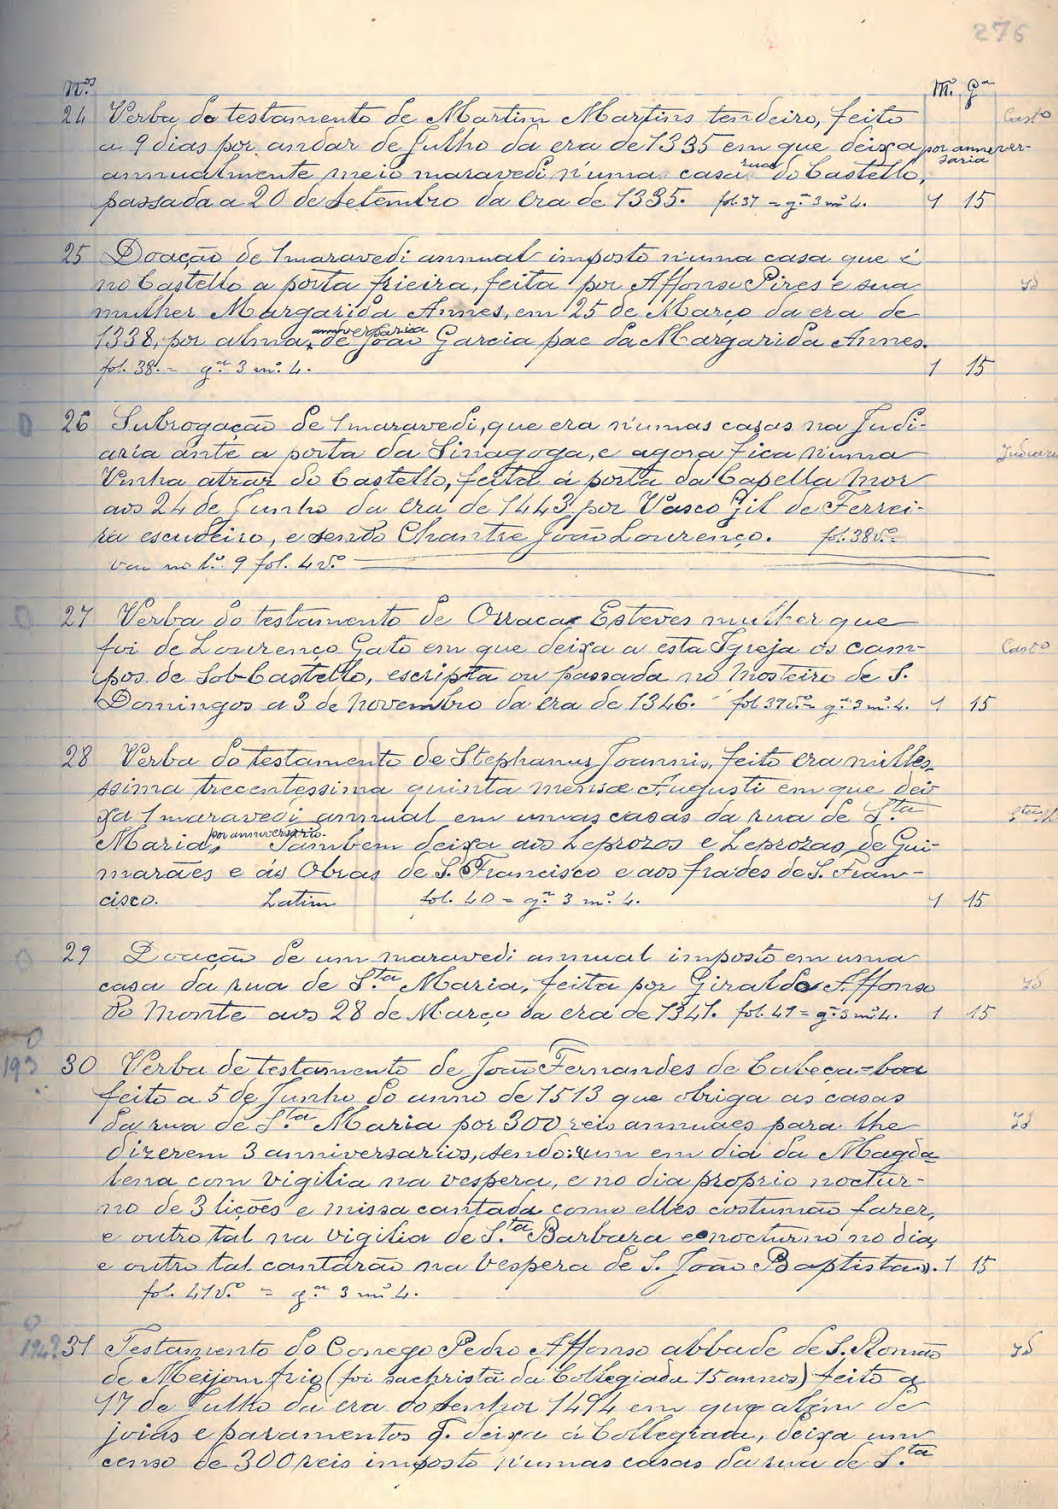 276
N.os M.o G.a
24 Verba do testamento de Martim Martins tendeiro, feito Casto
a 9 dias por andar de Julho da era de 1335 em que deixa por anniver-
saria
annualmente meio maravedi n'uma casa rua do Castello,
passada a 20 de Setembro da Era de 1335. fol. 37 = g.a 3 m.o 4. 1 15
25 Doação de 1 maravedi annual imposto n'uma casa que é
no Castello a porta frieira, feita por Affonso Pires e sua id
mulher Margarida Annes, em 25 de Março da era de
1338, por alma, anniversaria de João Garcia pae da Margarida Annes.
fol. 38. = g.a 3 m.o 4. 1 15
26 Subrogação de 1 maravedi, que era n'umas casas na Judi-
aria ante a porta da Sinagoga, e agora fica n'uma Judiaria
Vinha atraz do Castello, feita á porta da Capella Mor
aos 24 de Junho da era de 1443 por Vasco Gil de Ferrei-
ra escudeiro, e sendo Chantre João Lourenço. fol. 38 v.o =
vem no l.o 9 fol. 4 v.o
27 Verba do testamento de Orraca Esteves mulher que
foi de Lourenço Gato em que deixa a esta Igreja os cam- Casto
pos de Sob-Castello, escripta ou passada no Mosteiro de S.
Domingos a 3 de Novembro da era de 1346. fol. 39 v.o = g.a 3 m.o 4. 1 15
28 Verba do testamento de Stephanus Joannis, feito era milles-
ssima trecentessima quinta mensæ Augusti em que dei-
xa 1 maravedi annual em umas casas da rua de S.ta
Maria, por anniversario. Tambem deixa aos Leprozos e Leprozas de Gui-
marães e ás Obras de S. Francisco e aos frades de S. Fran-
cisco. Latim fol. 40 = g.a 3 m.o 4. 1 15
29 Doação de um maravedi annual imposto em uma
casa da rua de S.ta Maria, feita por Giraldo Affonso id
do Monte aos 28 de Março da era de 1341. fol. 41 = g.a 3 m.o 4. 1 15
193
30 Verba de testamento de João Fernandes de Cabeça-boa
feito a 5 de Junho do anno de 1513 que obriga as casas
da rua de S.ta Maria por 300 reis annuaes para lhe id
dizerem 3 anniversarios, sendo: um em dia da Magda-
lena com vigilia na vespera, e no dia proprio noctur-
no de 3 lições e missa cantada como elles costumão fazer,
e outro tal na vigilia de S.ta Barbara e nocturno no dia,
e outro tal cantarão na Vespera de S. João Baptista. 1 15
fol. 41 v.o = g.a 3 m.o 4.
31 Testamento do Conego Pedro Affonso abbade de S. Romão id
de Meijomfrio (foi sachristã da Collegiada 15 annos) feito a
17 de Julho da era do Senhor 1494 em que além de
joias e paramentos q. deixa á Collegiada, deixa um
censo de 300 reis imposto n'umas casas da rua de S.ta